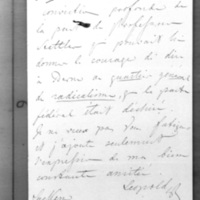 conviction profonde de
la part du Professeur
qui pouvait lui
donner le courage de dire
à Berne au quartier général
du radicalisme, que le pacte
fédéral était déchiré.
Je ne veux pas Vous fatiguer
et j'ajoute seulement
l'expression de ma bien
constante amitié
Leopold